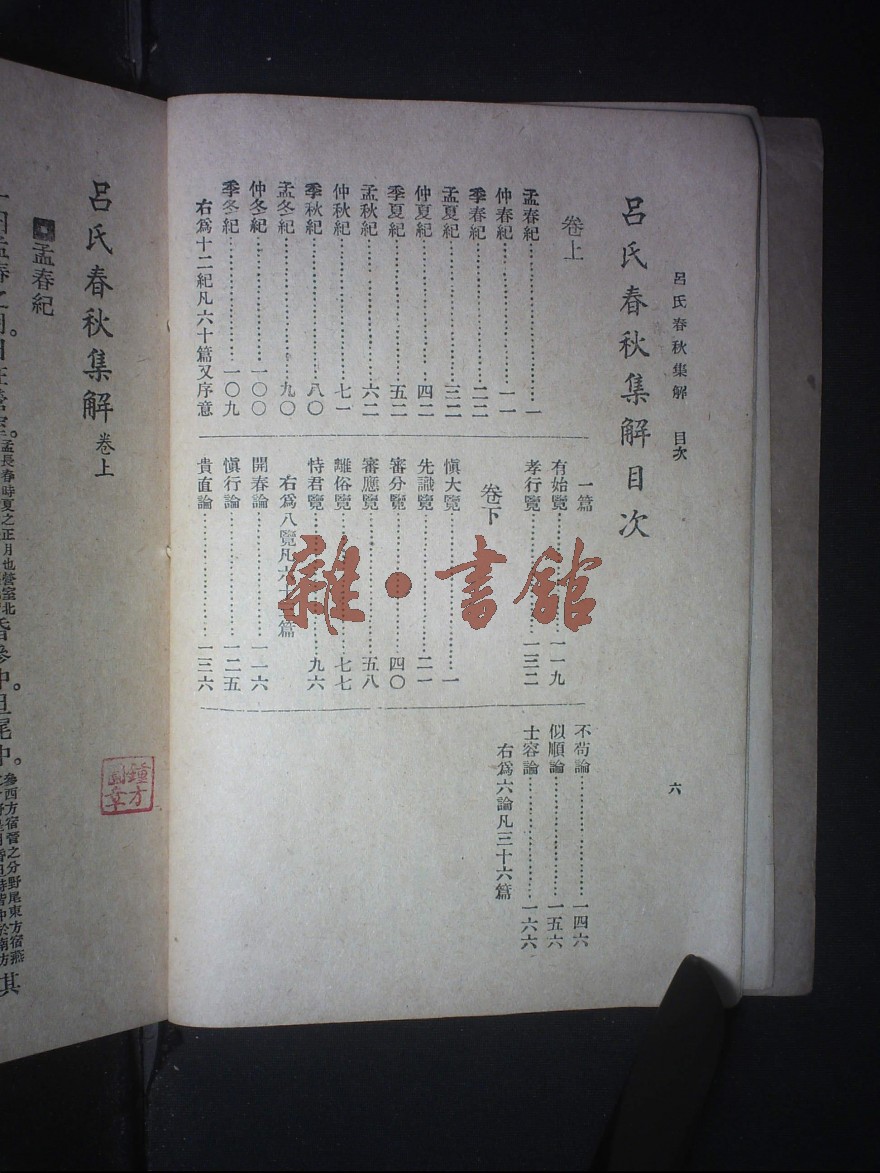 呂氏春秋集解 目次
六
呂氏春秋集解目次
卷上
孟春紀……一
仲春紀……一一
季春紀……二二
孟夏紀……三二
仲夏紀……四二
季夏紀……五二
孟秋紀……六二
仲秋紀……七一
季秋紀……八〇
孟冬紀……九〇
仲冬紀……一〇〇
季冬紀……一〇九
右爲十二紀凡六十篇又序意
一篇
有始覽……一一九
孝行覽……一三二
卷下
愼大覽……一
先識覽……二一
審分覽……四〇
審應覽……五八
離俗覽……七七
恃君覽……九六
右爲八覽凡六十 篇
開春論……一一六
愼行論……一二五
貴直論……一三六
不苟論……一四六
似順論……一五六
士容論……一六六
右爲六論凡三十六篇
雜·書館
呂氏春秋集解 卷上
孟春紀
鍾方
圖章